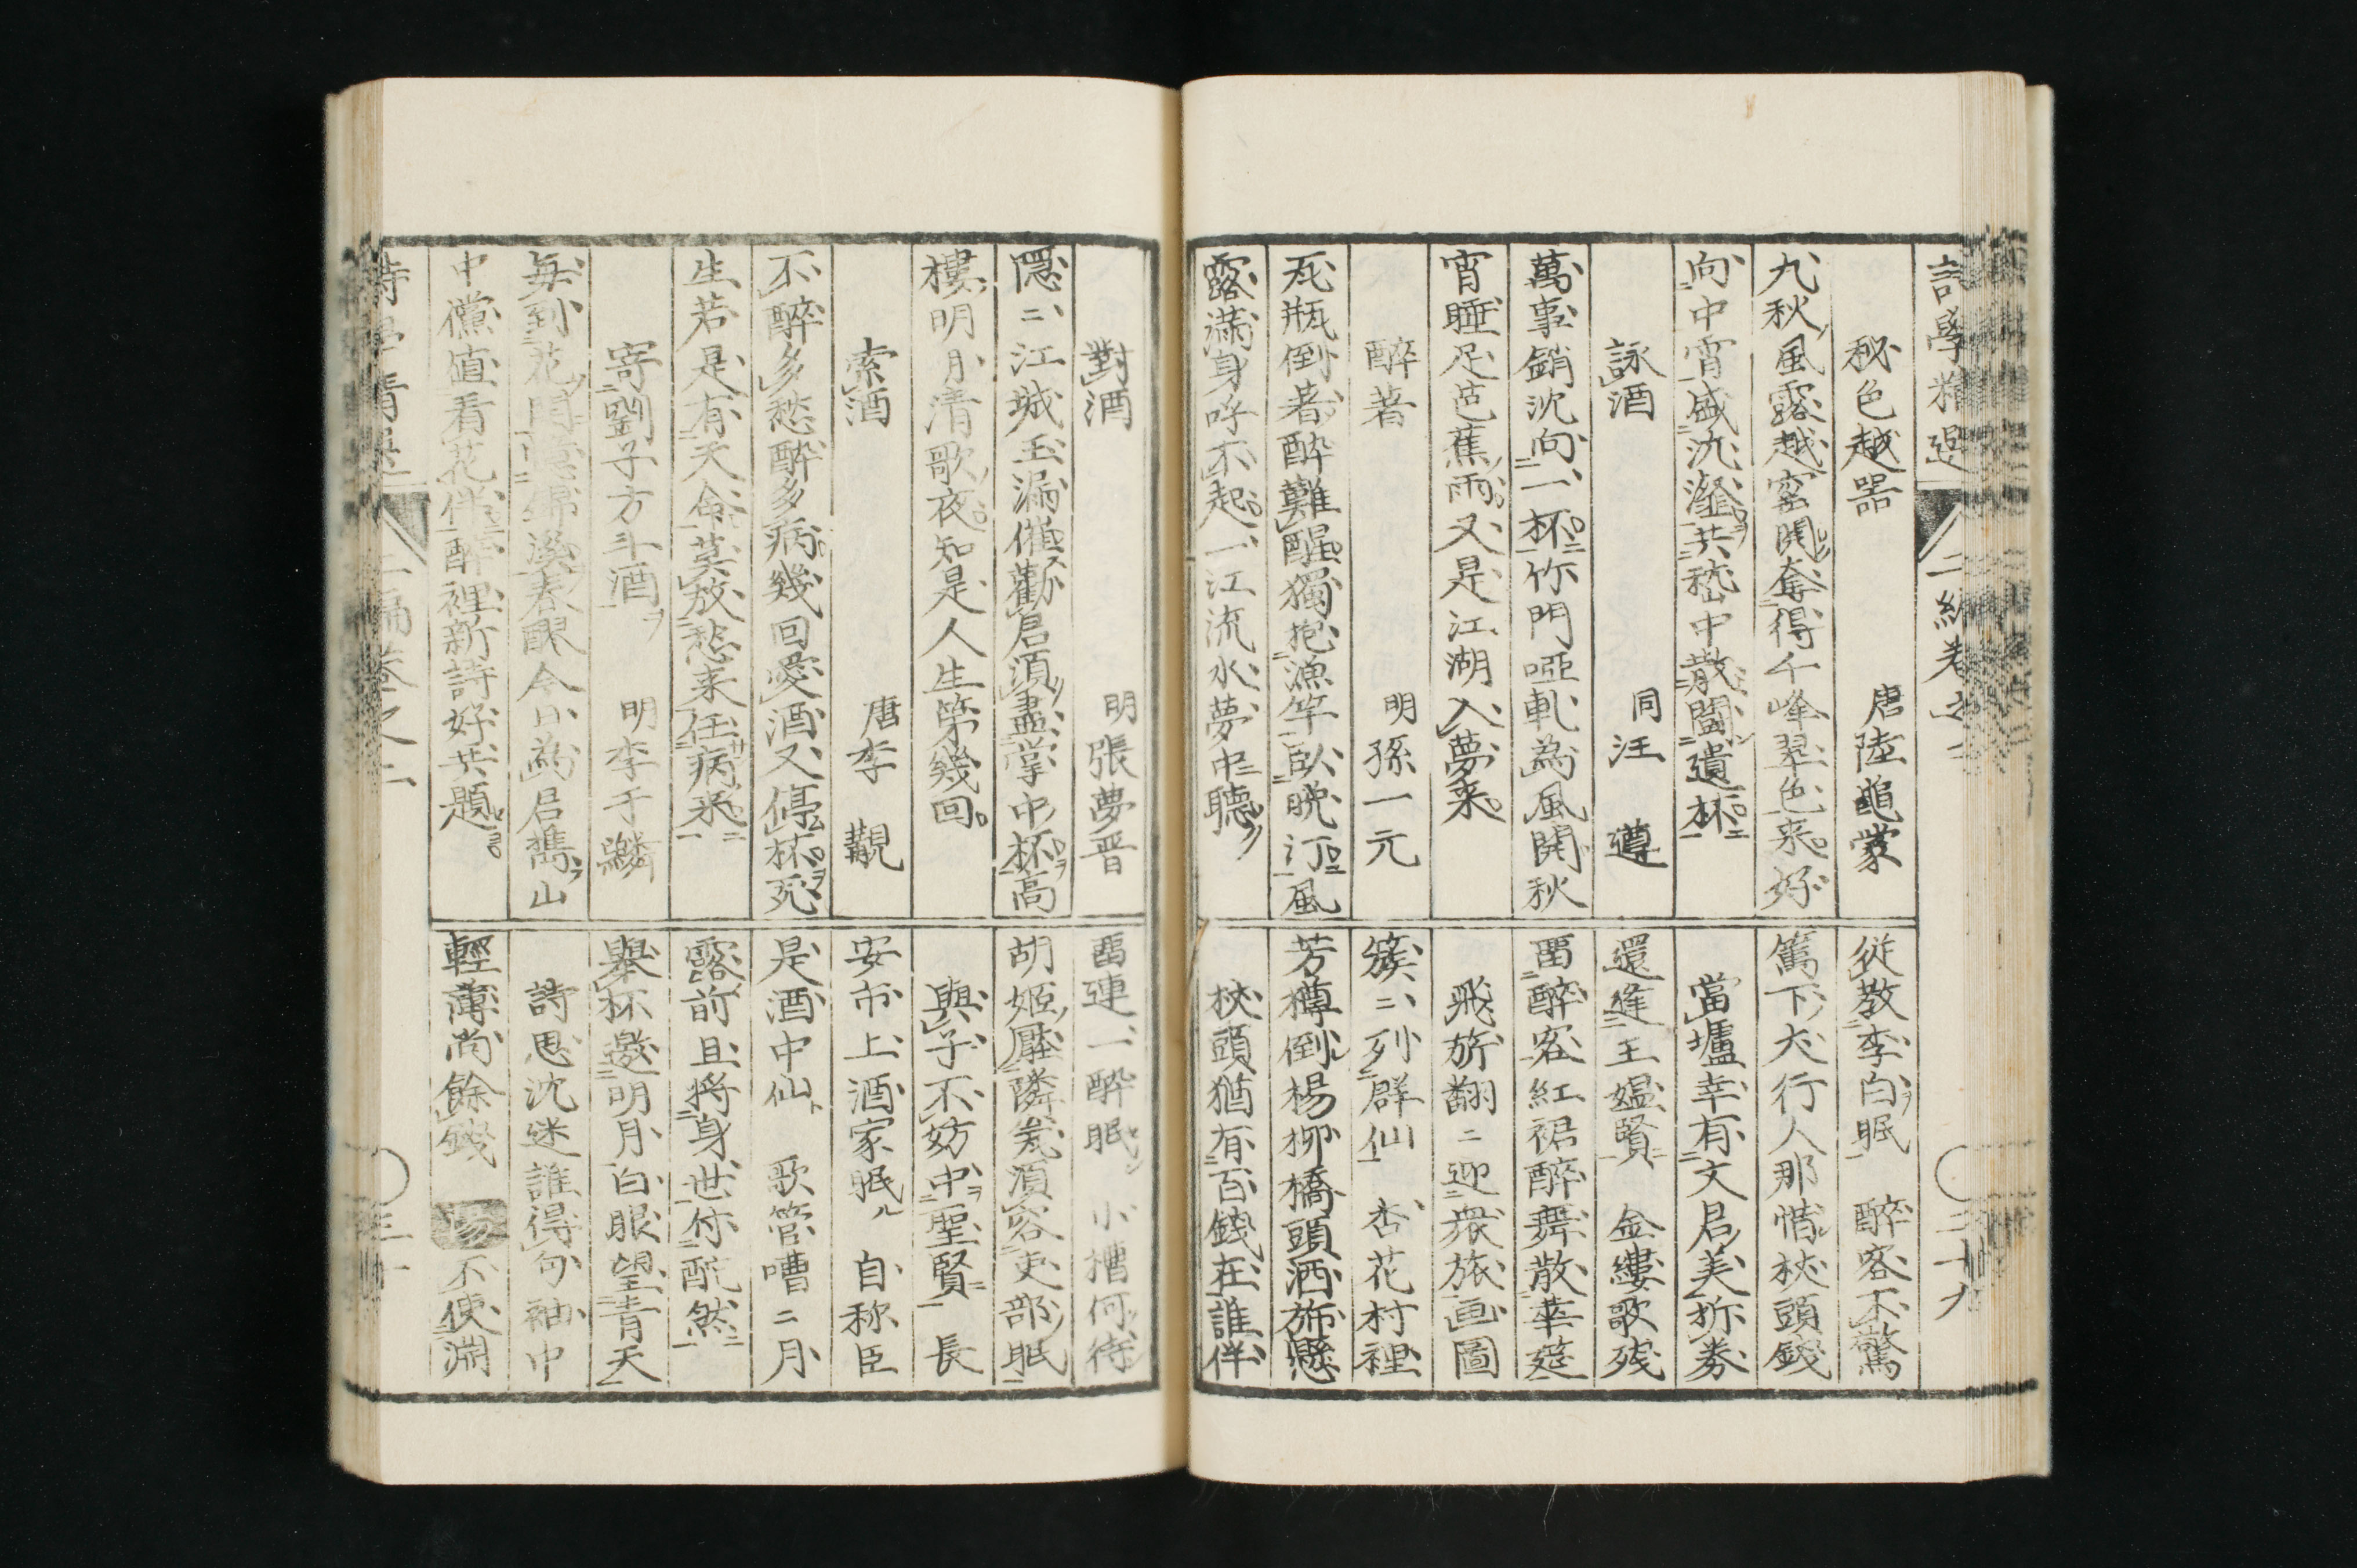 詩學精選 二編卷之二 二十九
秘色越器 唐陸龜蒙
九秋風露越窑開奪得千峰翠色来好
向中宵盛沆瀣共嵇中散闘遺杯
詠酒 同汪遵
萬事銷沈向一杯竹門啞軋為風開秋
宵睡足芭蕉雨又是江湖入夢来
醉著 明孫一元
瓦瓶倒著酔難醒獨抱漁竿臥晩汀風
露満身呼不起一江流水夢中聴
從教李白眠 醉客不驚
篤下犬行人那惜杖頭錢
當壚幸有文君美折券
還逢王媼賢 金縷歌残
畱醉客紅裙醉舞散華筵
飛斾翻〻迎衆旅画圖
簇〻列群仙 杏花村裡
芳樽倒楊柳橋頭洒斾懸
杖頭猶有百錢在誰伴
對酒 明張夢晋
隠〻江城玉漏催勸君須盡掌中杯高
樓明月清歌夜知是人生第幾回
索酒 唐李覯
不醉多愁醉多病幾回愛酒又停杯死
生若是有天命莫放愁来任病来
寄劉子方斗酒 明李于鱗
毎到花開隠錦溪春醪今日為君攜山
中儻値看花伴酔裡新詩好共題
畱連一酔眠 小槽何待
胡姬壓隣瓮須容吏部眠
與子不妨中聖賢 長
安市上酒家眠 自称臣
是酒中仙 歌管嘈〻月
露前且將身世付酕然
舉杯邀明月白眼望青天
詩思沈迷誰得句袖中
輕薄尚餘錢 不使淵
詩學精選 二編卷之二 三十